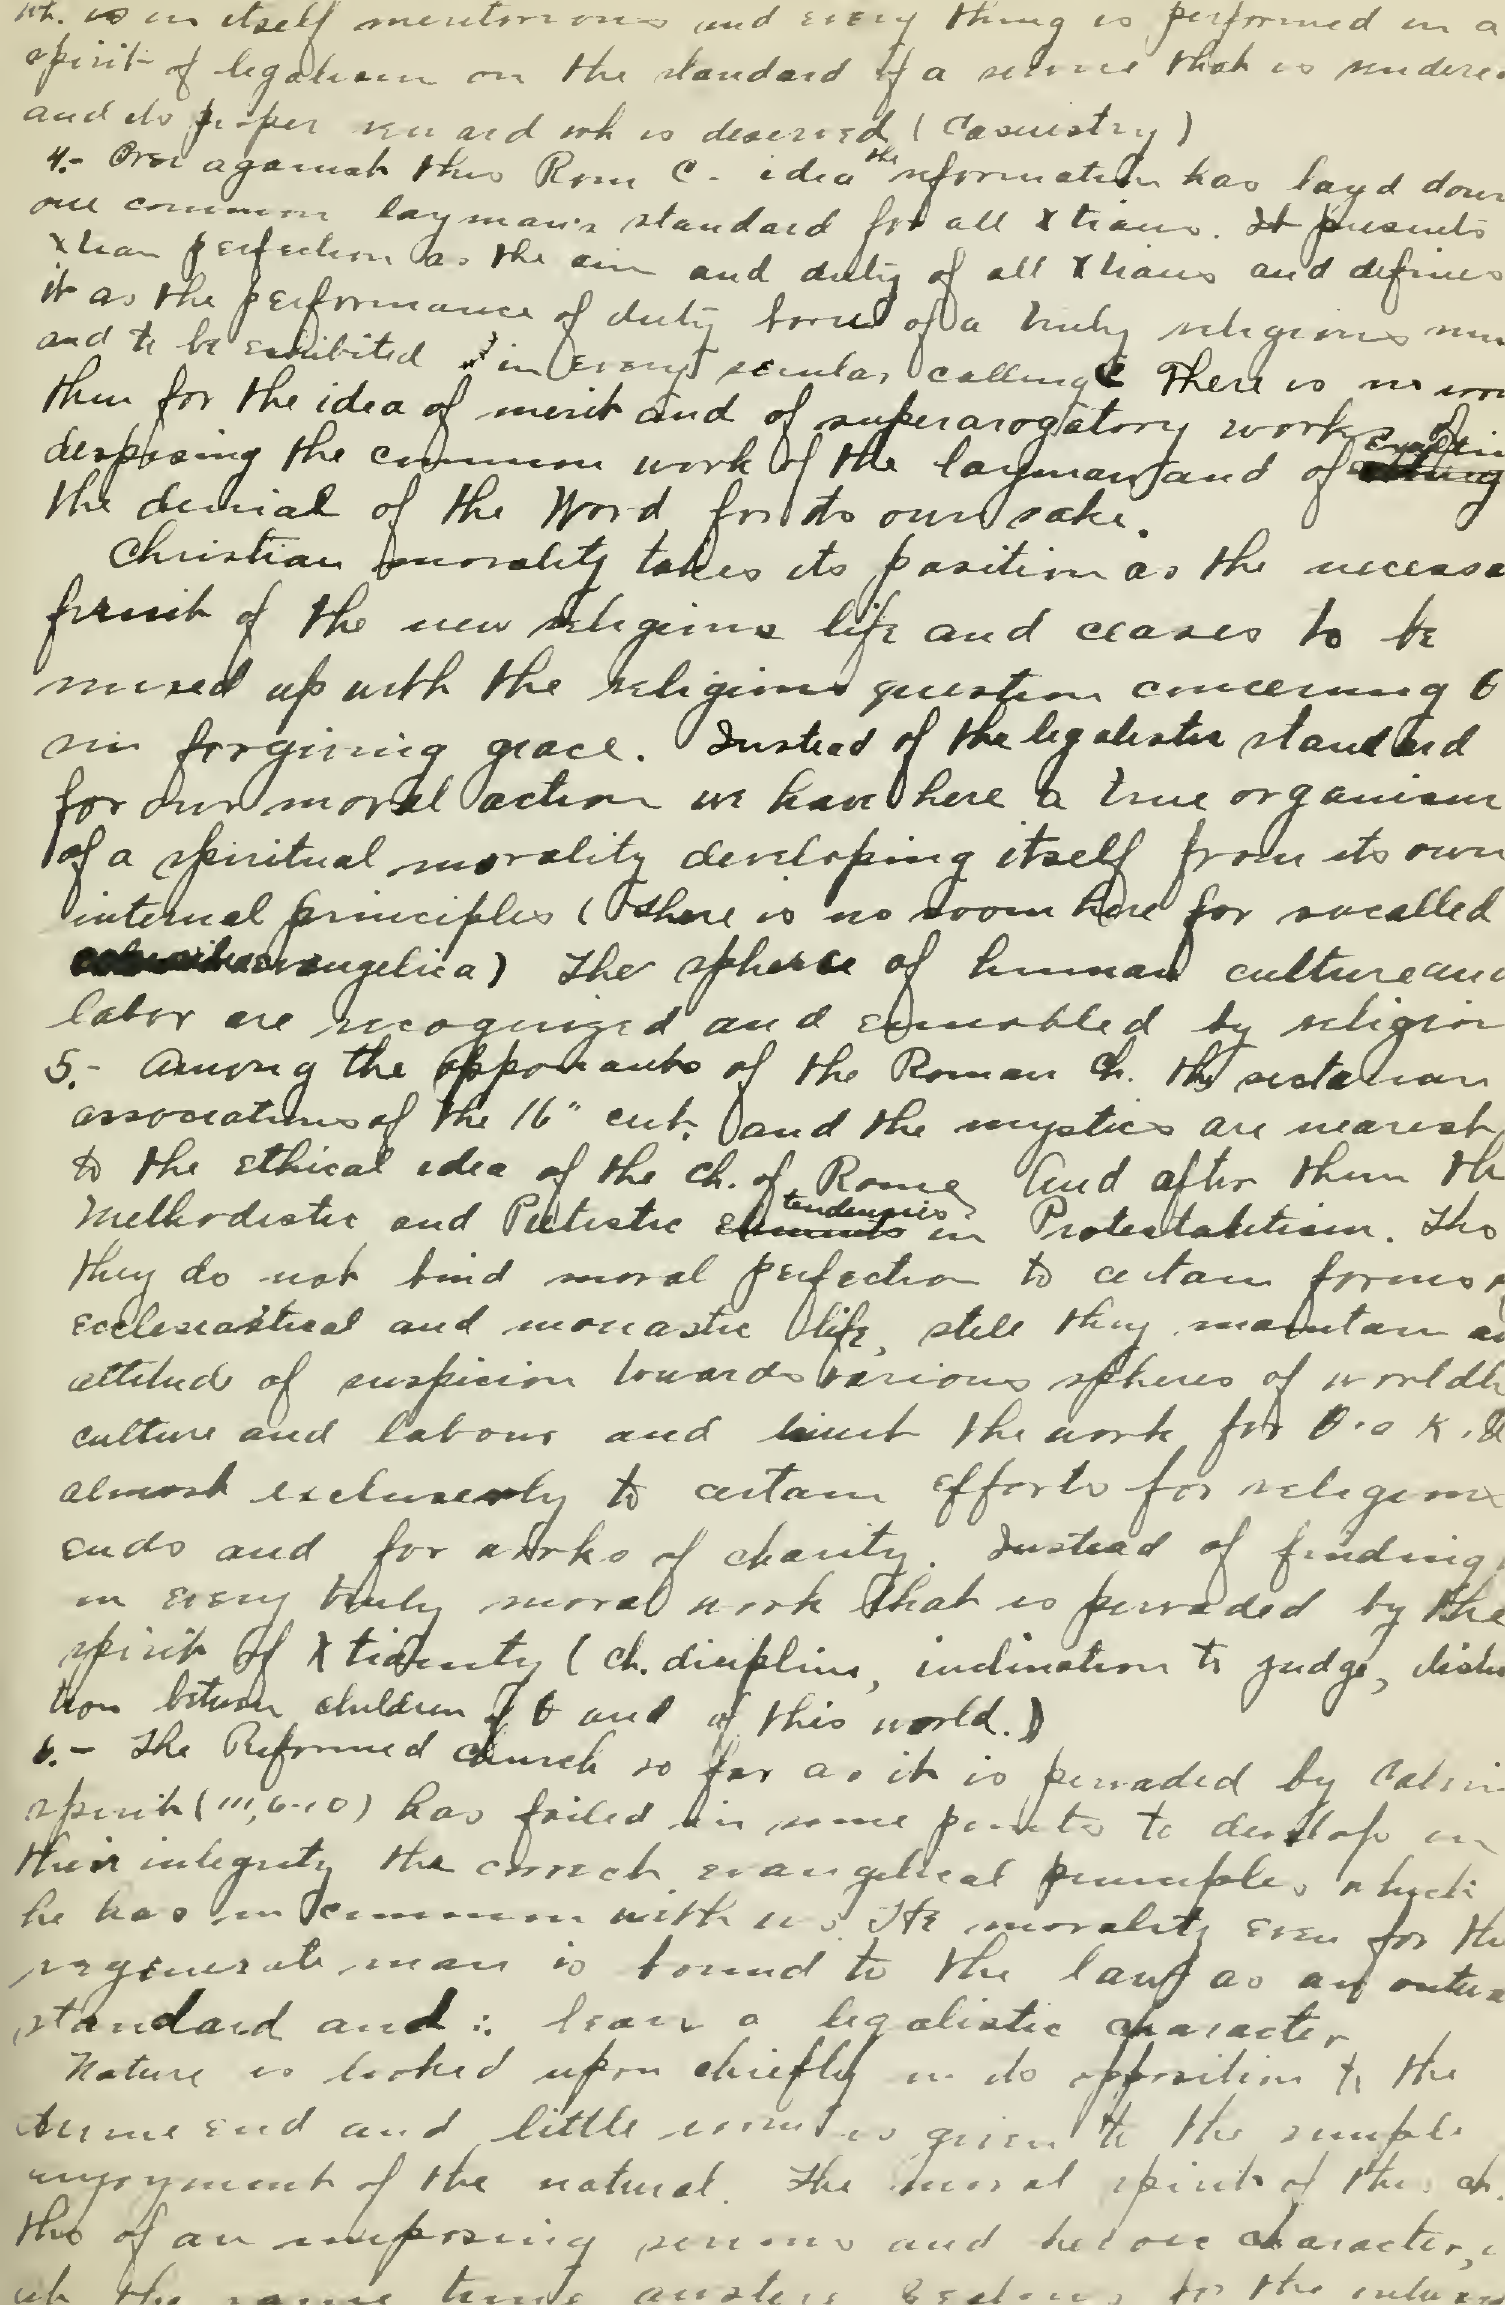 wh. is in itself meritorious and every thing is performed in a
spirit of legalism on the standard of a service that is rendere
and its proper reward wh is deserved (Casuistry)
4.- Over against this Rom C. idea the reformation has layd down
one common layman's standard for all Xtians. It presents
Xtian perfection as the aim and duty of all Xtians and defines
it as the performance of duty born of a truly religious
and to be exhibited in every secular calling There is no
then for the idea of merit and of superarogatory works of
despising the common work of the layman and of
the denial of the Word for its own sake.
Christian morality takes its position as the necessa
fruit of the new religious life and ceases to be
mixed up with the religious question concerning θ
sin forgiving grace. Instead of the legalistic standard
for our moral action we have here a true organism
of a spiritual morality developing itself from its own
internal principles (There is no room here for socalled
evangelica) The sphere of human culture and
labor are recognized and ennobled by religion
5.- Among the opponants of the Roman Ch. the sectarian
associations of the 16" cent. and the mystics are nearest
to the ethical idea of the ch. of Rome And after them th
Methodistic and Pietistic tendencies in Protestantism. Tho
they do not bind moral perfection to certain forms
ecclesiastical and monastic life, still they maintain a
attitude of suspicion towards various spheres of worldl
culture and labour and limit the work for K.
almost exclusively to certain efforts for religious
ends and for works of charity. Instead of finding
in every truly moral work that is pervaded by the
spirit of Xtianity (ch. discipline, inclination to judge, distin
tion between children of θ and of this world.)
6.- The Reformed church so far as it is pervaded by Calvin
spirit (III, 6-10) has failed in some points to develop in
their integrity the correct evangelical principles which
he has in common with us. Its morality even for the
regenerate man is bound to the law as an outwa
standard and ∴ bears a legalistic character
Nature is looked upon chiefly in its opposition to the
divine end and little room is given to the simple
enjoyment of the natural. The moral spirit of this ch.
tho of an imposing serious and heroic character,
at the same time austere for the